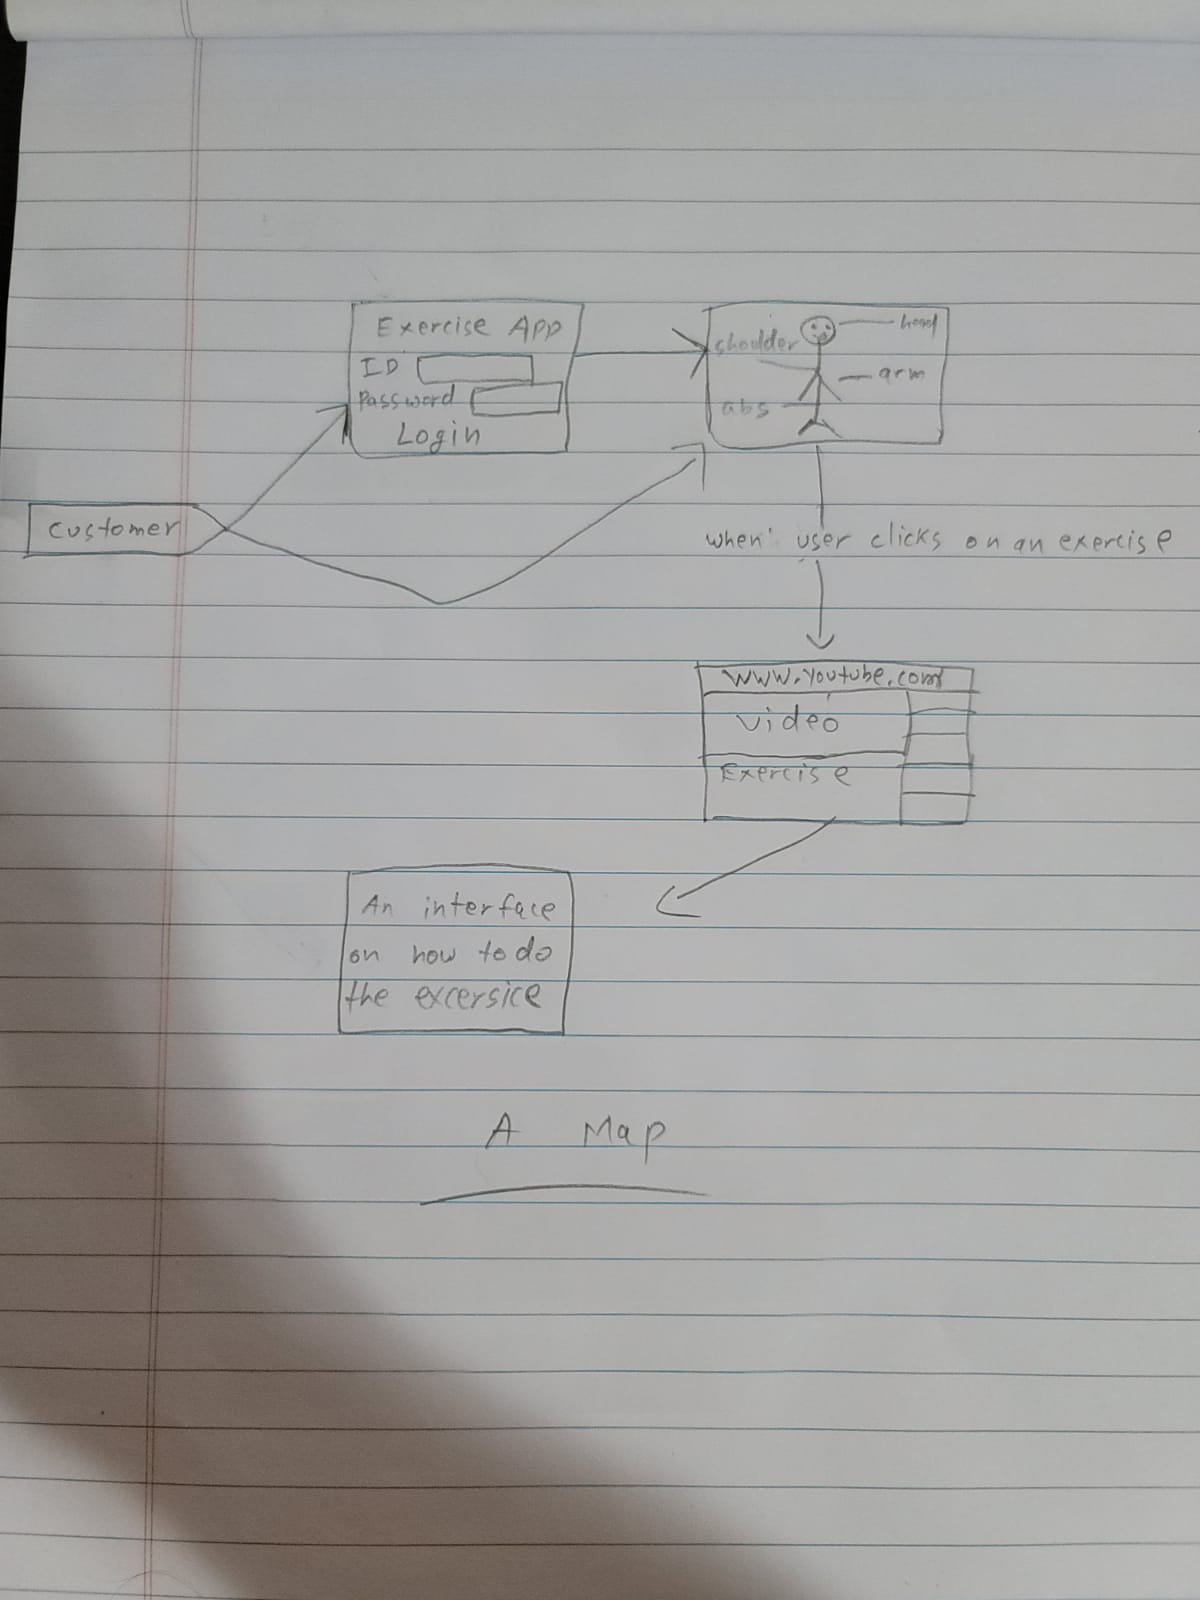 Exercise App
ID
Password
Login
head
shoulder
arm
abs
customer
when user clicks on an exercise
www.youtube.com
video
Exercise
An interface
on how to do
the excersice
A Map